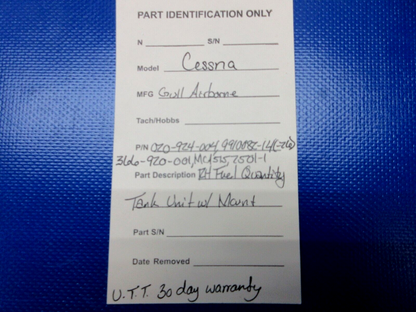 PART IDENTIFICATION ONLY
N S/N
Model Cessna
MFG Gull Airborne
Tach/Hobbs
P/N 020-924-004, 9910082-14
366-920-001, 7501-1
Part Description RH Fuel Quantity
Tank Unit w/ Mount
Part S/N
Date Removed
U.T.T. 30 day warranty